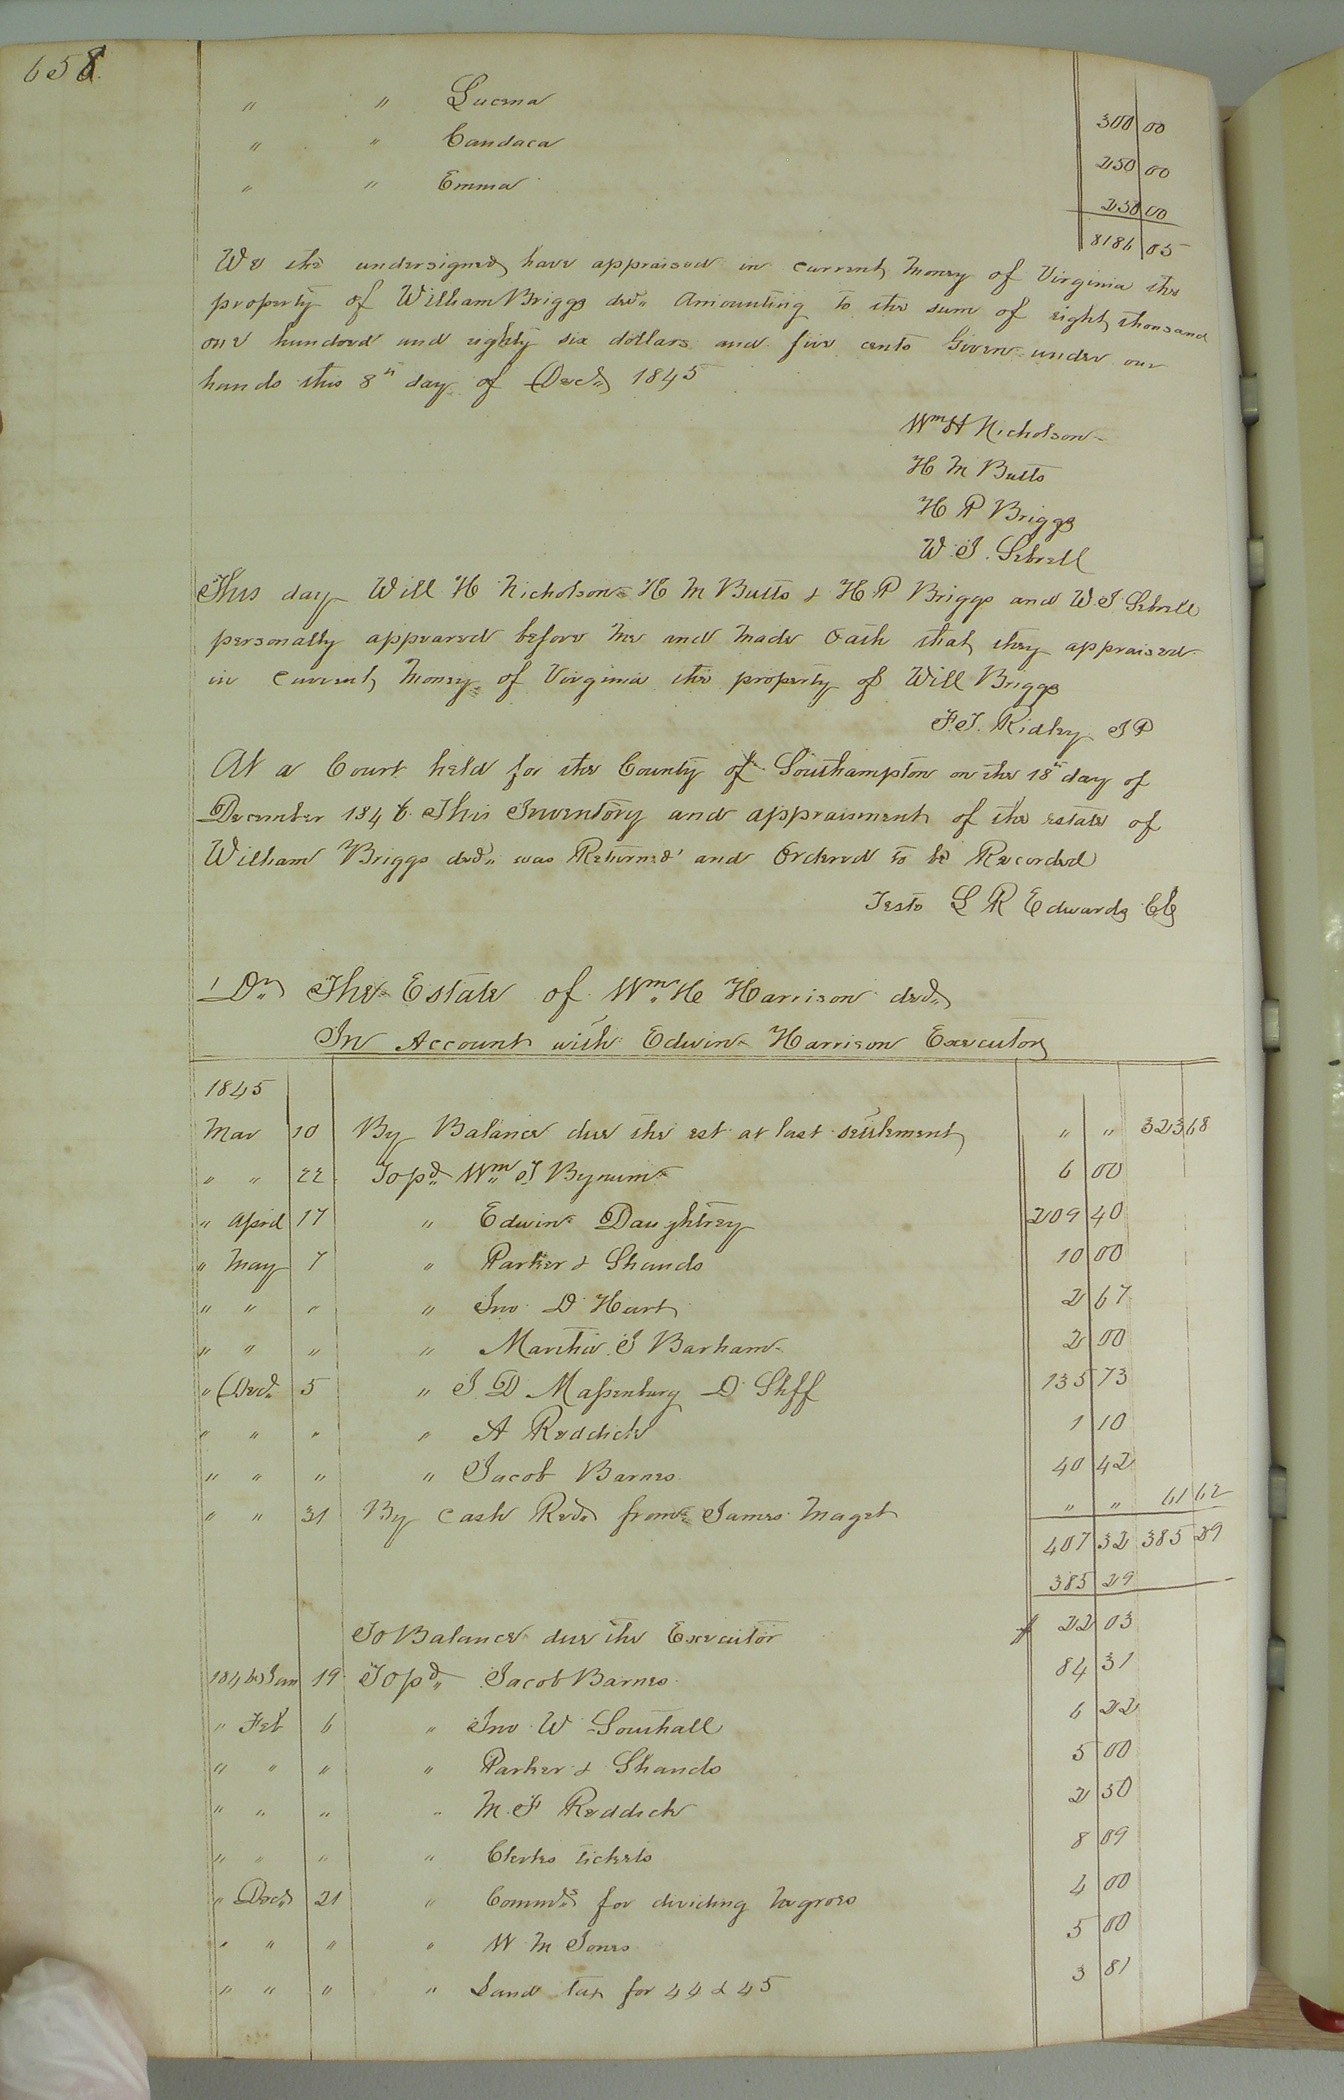 658.
" " Lucena 300 00
" " Candaca 250 00
" " Emma 250 00
8186 05
We the undersigned have appraised in current money of Virginia the
property of William Briggs decd. Amounting to the sum of eight thousand
one hundred and eighty six dollars and five cents Given under our
hands this 8th day of Decr. 1845
Wm H Nicholson
H M Butts
H P Briggs
W. J. Sebrell
This day Will H Nicholson H M Butts & H P Briggs and W J Sebrell
personally appeared before me and made Oath that they appraised
in current money of Virginia the property of Will Briggs
F. J. Ridley J P
At a Court held for the County of Southampton on the 18th day of
December 1846 This Inventory and appraisment of the estate of
William Briggs decd. was Returned and Ordered to be Recorded
Teste L R Edwards Clk
Dr. The Estate of Wm H Harrison decd.
In Account with Edwin Harrison Executor
1845
Mar 10 By Balance due the est at last settlement " " 323 68
" " 22 To pd. Wm J Bynum 6 00
" April 17 " Edwin Daughtrey 209 40
" May 7 " Parker & Shands 10 00
" " " " Jno D Hart 2 67
" " " " Martha J Barham 2 00
" Decr. 5 " J D Massenburg D Shff 135 73
" " " " A Reddick 1 10
" " " " Jacob Barnes 40 42
" " 31 By Cash Recd. from James Maget " " 61 62
407 32 385 29
385 29
To Balance due the Executor $ 22 03
1846 Jan 19 To pd. Jacob Barnes 84 31
" Feb 6 " Jno W Southall 6 22
" " " " Parker & Shands 5 00
" " " " M. F Reddick 2 50
" " " " Clerks tickets 8 09
" Decr. 21 " Commrs. for dividing negroes 4 00
" " " " W M Jones 5 00
" " " " Land tax for 44 & 45 3 81